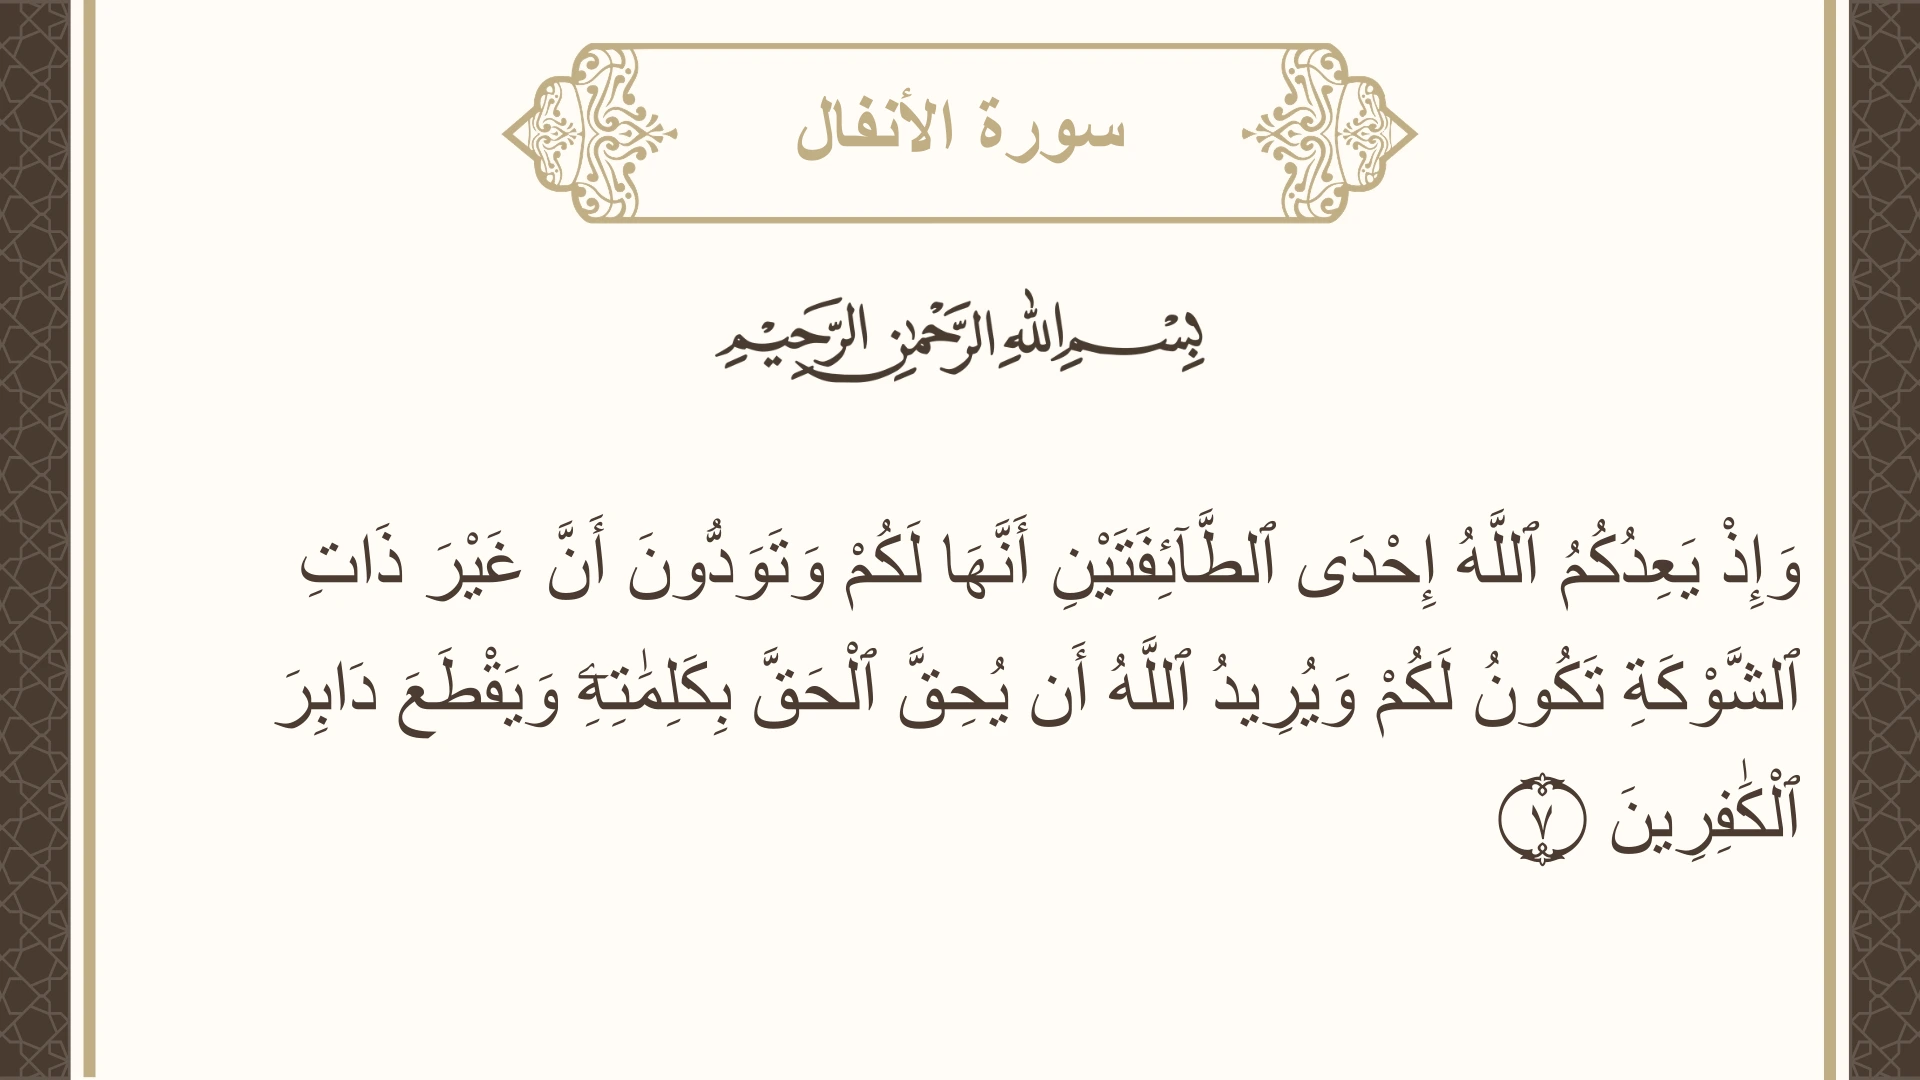 سورة الأنفال
بِسْمِ اللهِ الرَّحْمٰنِ الرَّحِيْمِ
وَإِذْ يَعِدُكُمُ ٱللَّهُ إِحْدَى ٱلطَّآئِفَتَيْنِ أَنَّهَا لَكُمْ وَتَوَدُّونَ أَنَّ غَيْرَ ذَاتِ
ٱلشَّوْكَةِ تَكُونُ لَكُمْ وَيُرِيدُ ٱللَّهُ أَن يُحِقَّ ٱلْحَقَّ بِكَلِمَٰتِهِۦ وَيَقْطَعَ دَابِرَ
ٱلْكَٰفِرِينَ ٧